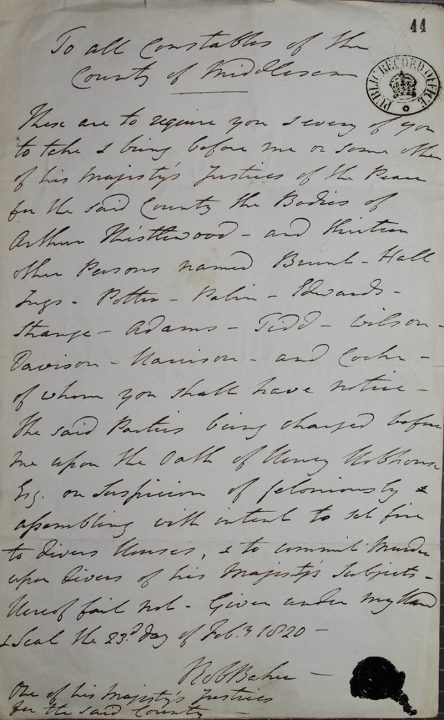 44
PUBLIC RECORD OFFICE
To all Constables of the
County of Middlesex
These are to require you & every of you
to take & bring before me or some other
of his Majesty's Justices of the Peace
for the said County the Bodies of
Arthur Thistlewood - and thirteen
other Persons named Brunt - Hall
Ings - Potter - Palin - Edwards -
Strange - Adams - Tidd - Wilson
Davison - Harrison - and Cooke -
of whom you shall have notice -
the said Parties being charged before
me upon the Oath of Henry Hobhouse
Esq. on suspicion of feloniously &
assembling with intent to set fire
to divers Houses, & to commit Murder
upon divers of his Majesty's Subjects -
Hereof fail not - Given under my Hand
& Seal the 23d. day of Feby. 1820 -
Rob Baker -
One of his Majesty's Justices
for the said County -